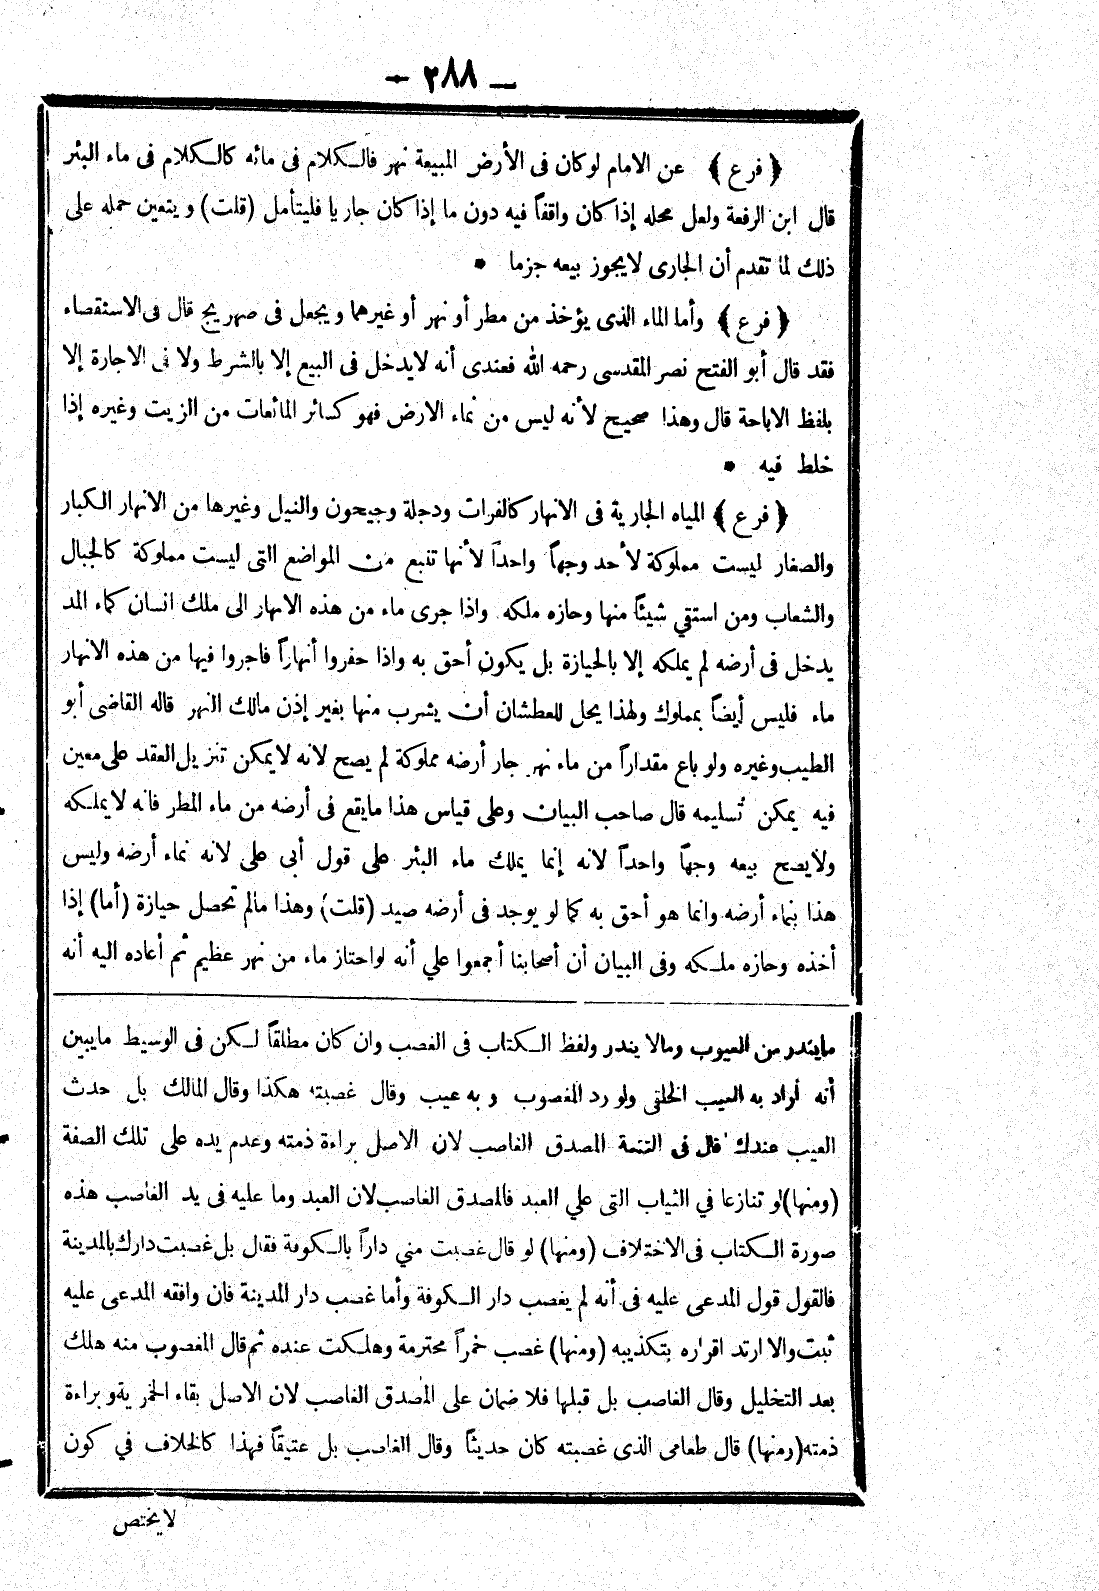 — ٢٨٨ —
﴿ فرع ﴾ عن الامام لوكان فى الأرض المبيعة نهر فالكلام فى مائه كالكلام فى ماء البئر
قال ابن الرفعة ولعل محله إذا كان واقفاً فيه دون ما إذا كان جاريا فليتأمل (قلت) ويتعين حمله على
ذلك لما تقدم أن الجارى لايجوز بيعه جزما *
﴿ فرع ﴾ وأما الماء الذى يؤخذ من مطر أو نهر أو غيرهما ويجعل فى صهريج قال فى الاستقصاء
فقد قال أبو الفتح نصر المقدسى رحمه الله فعندى أنه لايدخل فى البيع إلا بالشرط ولا فى الاجارة إلا
بلفظ الاباحة قال وهذا صحيح لأنه ليس من نماء الارض فهو كسائر المائعات من الزيت وغيره إذا
خلط فيه *
﴿ فرع ﴾ المياه الجارية فى الانهار كالفرات ودجلة وجيحون والنيل وغيرها من الانهار الكبار
والصغار ليست مملوكة لأحد وجهاً واحداً لأنها تنبع من المواضع التى ليست مملوكة كالجبال
والشعاب ومن استقي شيئاً منها وحازه ملكه واذا جرى ماء من هذه الانهار الى ملك انسان كماء المد
يدخل فى أرضه لم يملكه إلا بالحيازة بل يكون أحق به واذا حفروا أنهاراً فاجروا فيها من هذه الانهار
ماء فليس أيضاً بمملوك ولهذا يحل للعطشان أن يشرب منها بغير إذن مالك النهر قاله القاضى أبو
الطيب وغيره ولو باع مقداراً من ماء نهر جار أرضه مملوكة لم يصح لانه لايمكن تنزيل العقد على معين
فيه يمكن تسليمه قال صاحب البيان وعلى قياس هذا مايقع فى أرضه من ماء المطر فانه لايملكه
ولايصح بيعه وجهاً واحداً لانه إنما يملك ماء البئر على قول أبى على لانه نماء أرضه وليس
هذا بنماء أرضه وانما هو أحق به كما لو يوجد فى أرضه صيد (قلت) وهذا مالم تحصل حيازة (أما) إذا
أخذه وحازه ملكه وفى البيان أن أصحابنا أجمعوا علي أنه لواحتاز ماء من نهر عظيم ثم أعاده اليه أنه
مايندر من العيوب ومالا يندر ولفظ الكتاب فى الغصب وان كان مطلقاً لكن فى الوسيط مايبين
أنه أراد به العيب الخلقى ولو رد المغصوب و به عيب وقال غصبته هكذا وقال المالك بل حدث
العيب عندك قال فى التتمة المصدق الغاصب لان الاصل براءة ذمته وعدم يده على تلك الصفة
(ومنها) لو تنازعا في الثياب التى علي العبد فالمصدق الغاصب لان العبد وما عليه فى يد الغاصب هذه
صورة الكتاب فى الاختلاف (ومنها) لو قال غصبت مني داراً بالكوفة فقال بل غصبت دارك بالمدينة
فالقول قول المدعى عليه فى أنه لم يغصب دار الكوفة وأما غصب دار المدينة فان وافقه المدعى عليه
ثبت والا ارتد اقراره بتكذيبه (ومنها) غصب خمراً محترمة وهلكت عنده ثم قال المغصوب منه هلك
بعد التخليل وقال الغاصب بل قبلها فلا ضمان على المصدق الغاصب لان الاصل بقاء الخمرية وبراءة
ذمته (ومنها) قال طعامى الذى غصبته كان حديثاً وقال الغاصب بل عتيقاً فهذا كالخلاف في كون
لايختص